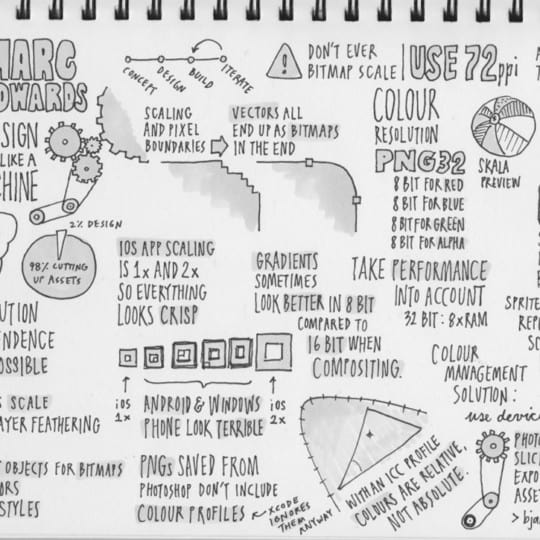 MARC
EDWARDS
DESIGN
LIKE A
MACHINE
CONCEPT
DESIGN
BUILD
ITERATE
DON'T EVER
BITMAP SCALE
USE 72ppi
SCALING
AND PIXEL
BOUNDARIES
VECTORS ALL
END UP AS BITMAPS
IN THE END
COLOUR
RESOLUTION
PNG32
8 BIT FOR RED
8 BIT FOR BLUE
8 BIT FOR GREEN
8 BIT FOR ALPHA
SKALA
PREVIEW
2% DESIGN
98% CUTTING
UP ASSETS
IOS APP SCALING
IS 1x AND 2x
SO EVERYTHING
LOOKS CRISP
GRADIENTS
SOMETIMES
LOOK BETTER IN 8 BIT
COMPARED TO
16 BIT WHEN
COMPOSITING.
TAKE PERFORMANCE
INTO ACCOUNT
32 BIT : 8xRAM
SPRITE
REP
SC
UTION
ENDENCE
OSSIBLE
iOS
1x
ANDROID & WINDOWS
PHONE LOOK TERRIBLE
iOS
2x
COLOUR
MANAGEMENT
SOLUTION:
use device
S SCALE
AYER FEATHERING
T OBJECTS FOR BITMAPS
ORS
STYLES
PNGS SAVED FROM
PHOTOSHOP DON'T INCLUDE
COLOUR PROFILES
XCODE
IGNORES
THEM
ANYWAY
WITHAN ICC PROFILE
COLOURS ARE RELATIVE,
NOT ABSOLUTE.
PHOTO
SLIC
EXPO
ASSE
> bja